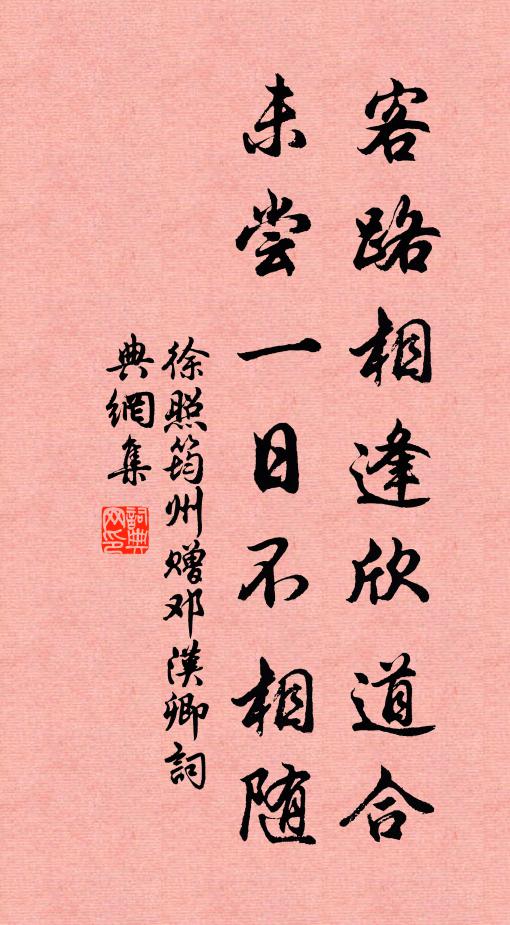 客路相逢欣道合
未尝一日不相随
徐照筠州赠邓漢卿詞
典網集
詞典
网印